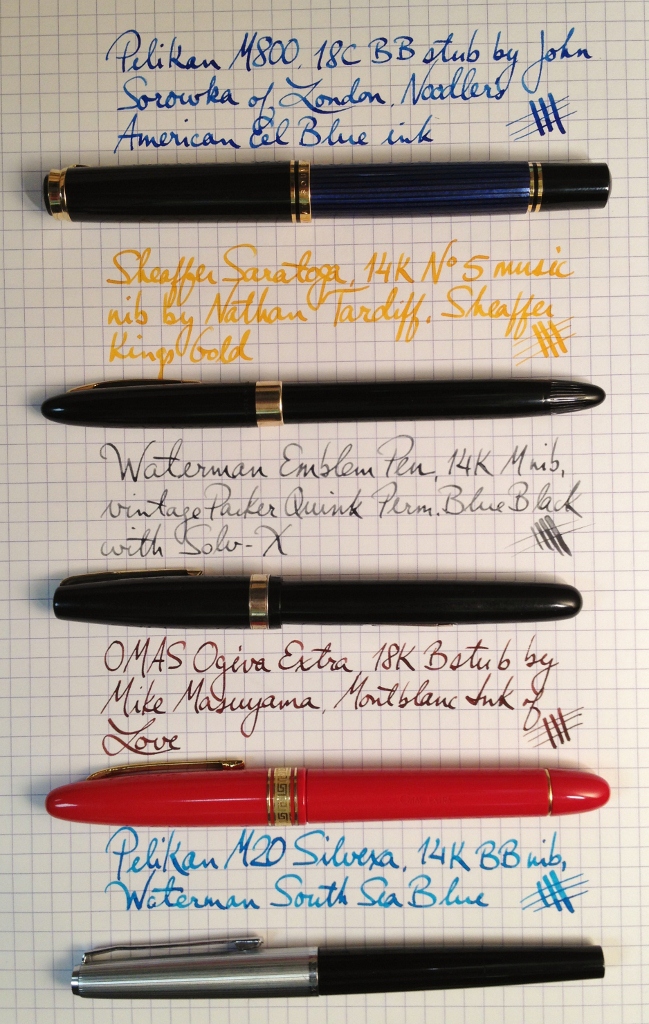 Pelikan M800, 18C BB stub by John
Sorowka of London, Noodlers
American Eel Blue ink
Sheaffer Saratoga, 14K Nº 5 music
nib by Nathan Tardiff, Sheaffer
Kings Gold
Waterman Emblem Pen, 14K M nib,
vintage Parker Quink Perm. Blue Black
with Solv-X
OMAS Ogiva Extra, 18K B stub by
Mike Masuyama, Montblanc Ink of
Love
Pelikan M20 Silvexa, 14K BB nib,
Waterman South Sea Blue